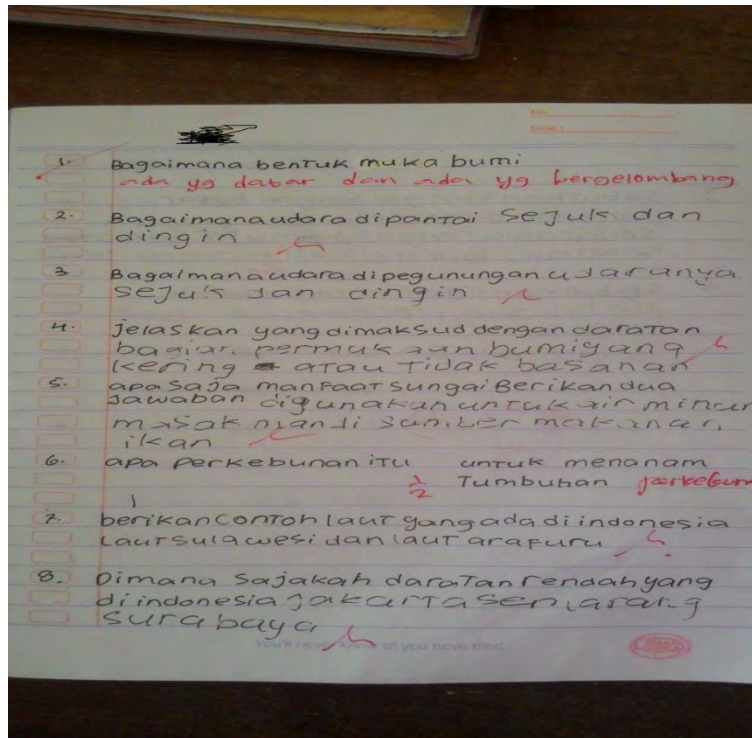 No.
Date :
1. Bagaimana bentuk muka bumi
ada yg datar dan ada yg bergelombang
2. Bagaimana udara dipantai sejuk dan
dingin
3 Bagaimana udara dipegunungan udaranya
sejuk dan dingin
4. jelaskan yang dimaksud dengan daratan
bagian permukaan bumi yang
kering atau tidak basanan
5. apa saja manfaat sungai Berikan dua
Jawaban digunakan untuk air minum
masak mandi sumber makanan
ikan
6. apa perkebunan itu untuk menanam
1/2 Tumbuhan perkebun
7. berikan contoh laut yang ada di indonesia
laut sulawesi dan laut arafuru
8. Dimana sajakah daratan rendah yang
di indonesia jakarta semarang
surabaya
You'll never know till you have tried